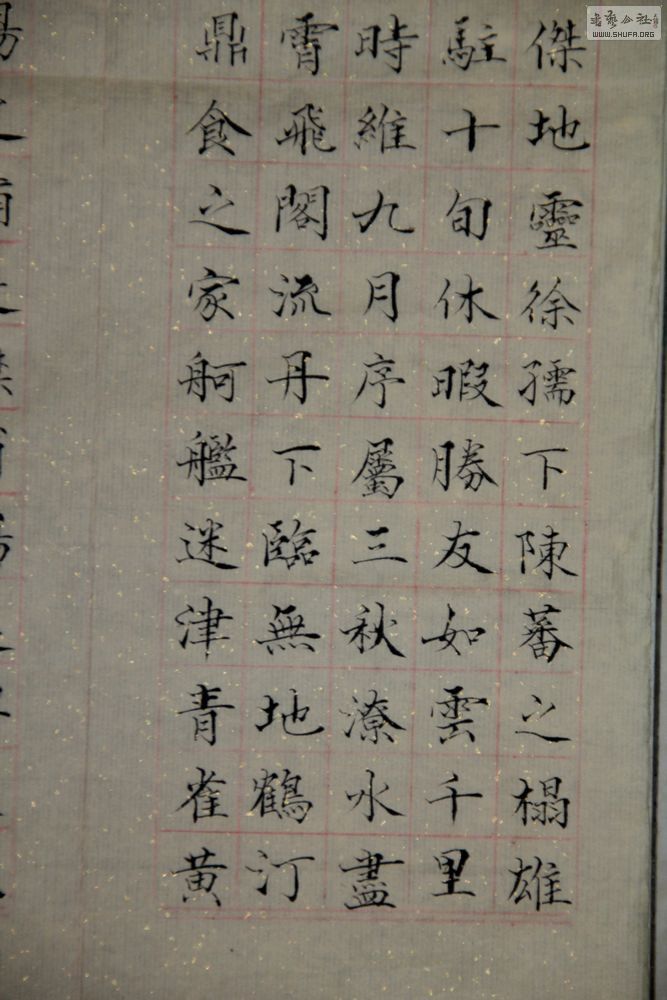 傑地靈徐孺下陳蕃之榻雄
駐十旬休暇勝友如雲千里
時維九月序屬三秋潦水盡
霄飛閣流丹下臨無地鶴汀
鼎食之家舸艦迷津青雀黄
書藝公社
WWW.SHUFA.ORG